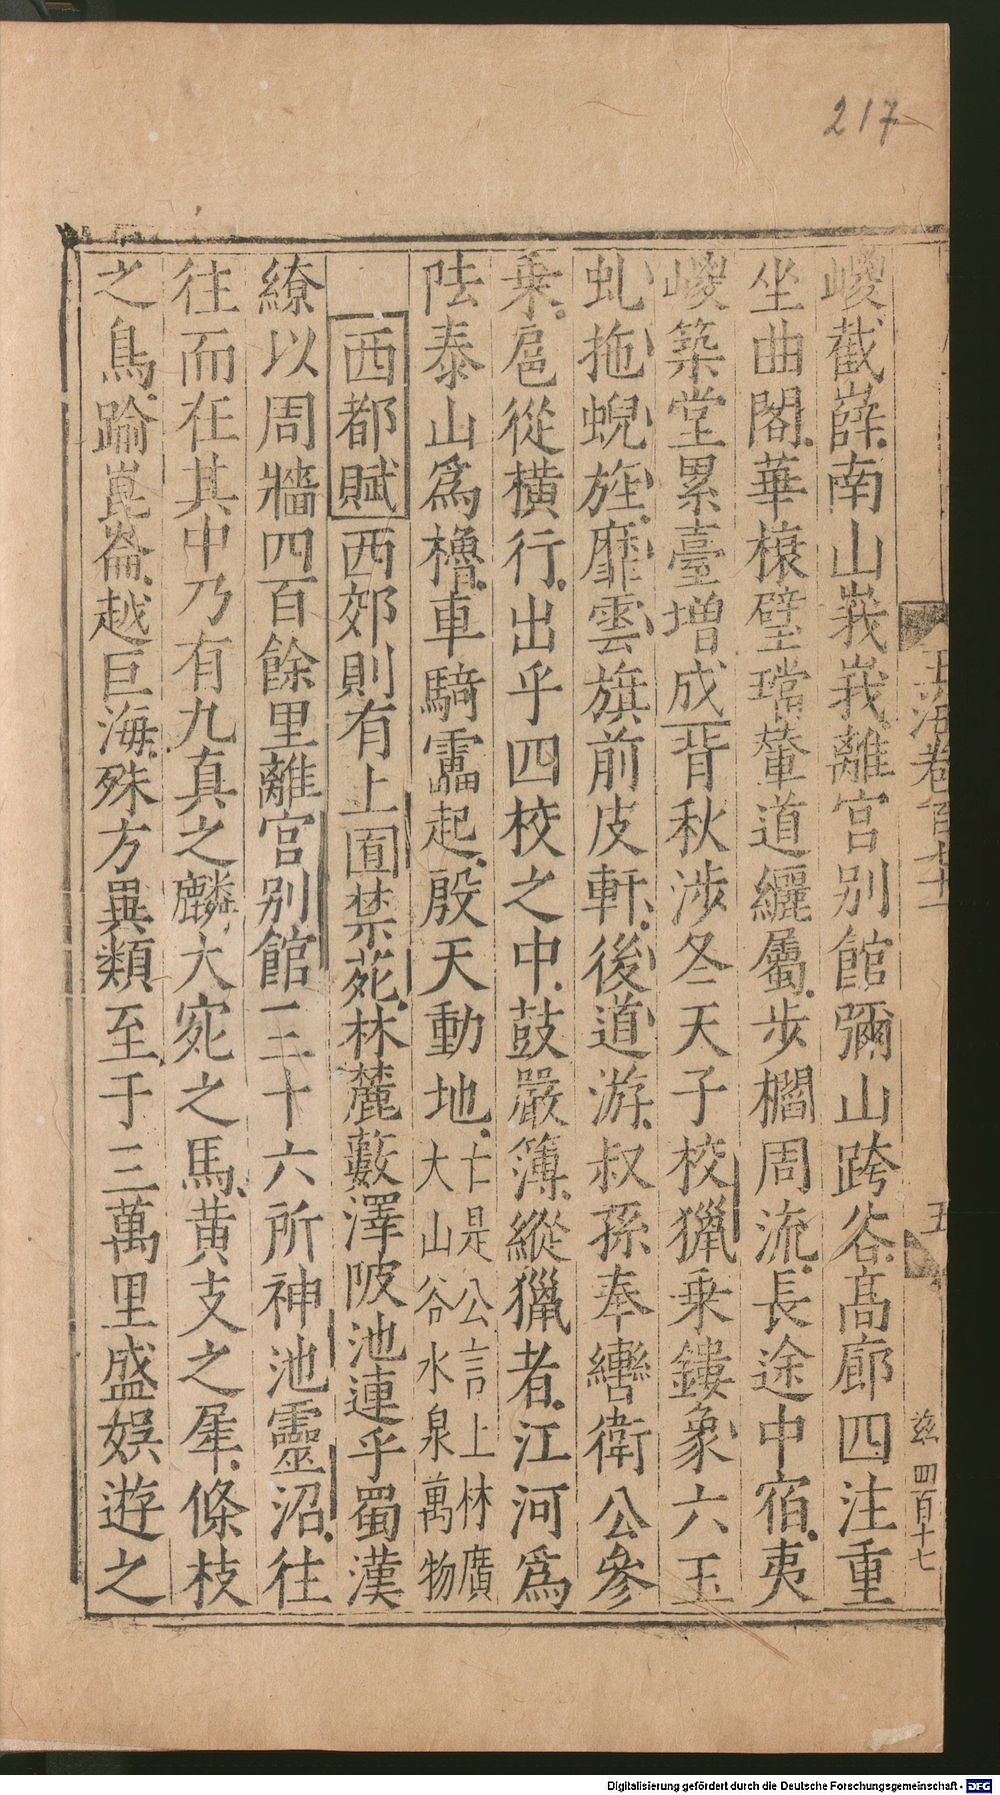 217
玉海卷百七十一
五
茲 四百十七
嵕截嶭南山峩峩離宮別館彌山跨谷髙廊四注重
坐曲閣華榱璧璫輦道纚屬步櫩周流長途中宿夷
嵕築堂累臺增成背秋涉冬天子校獵乗鏤象六玉
虬拖蜺旌靡雲旗前皮軒後道游叔孫奉轡衛公參
乗扈從橫行出乎四校之中鼓嚴簿縱獵者江河爲
阹泰山爲櫓車騎靁起殷天動地亡是公言上林廣大山谷水泉萬物
西都賦西郊則有上囿禁苑林麓藪澤陂池連乎蜀漢
繚以周牆四百餘里離宮别館三十六所神池靈沼往
往而在其中乃有九真之麟大宛之馬黃支之犀條枝
之鳥踰崑崙越巨海殊方異類至于三萬里盛娱遊之
Digitalisierung gefördert durch die Deutsche Forschungsgemeinschaft - DFG